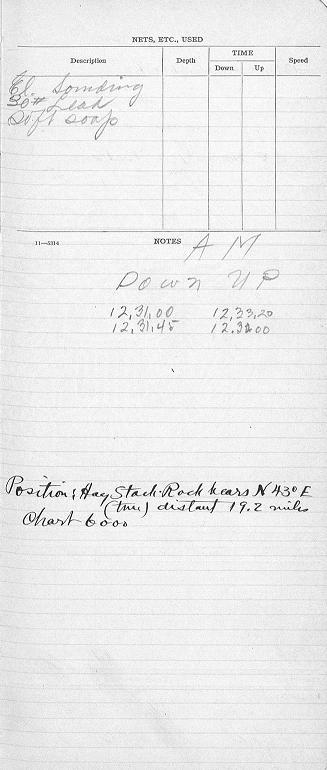 NETS, ETC., USED
Description Depth TIME Speed
Down Up
El. Sounding
30# Lead
Soft soap
11—5314 NOTES
A M
Down UP
12,31,00 12,33,20
12,31,45 12.32.00
Position: Hay Stack Rock bears N 43° E
(true) distant 19.2 miles
Chart 6000